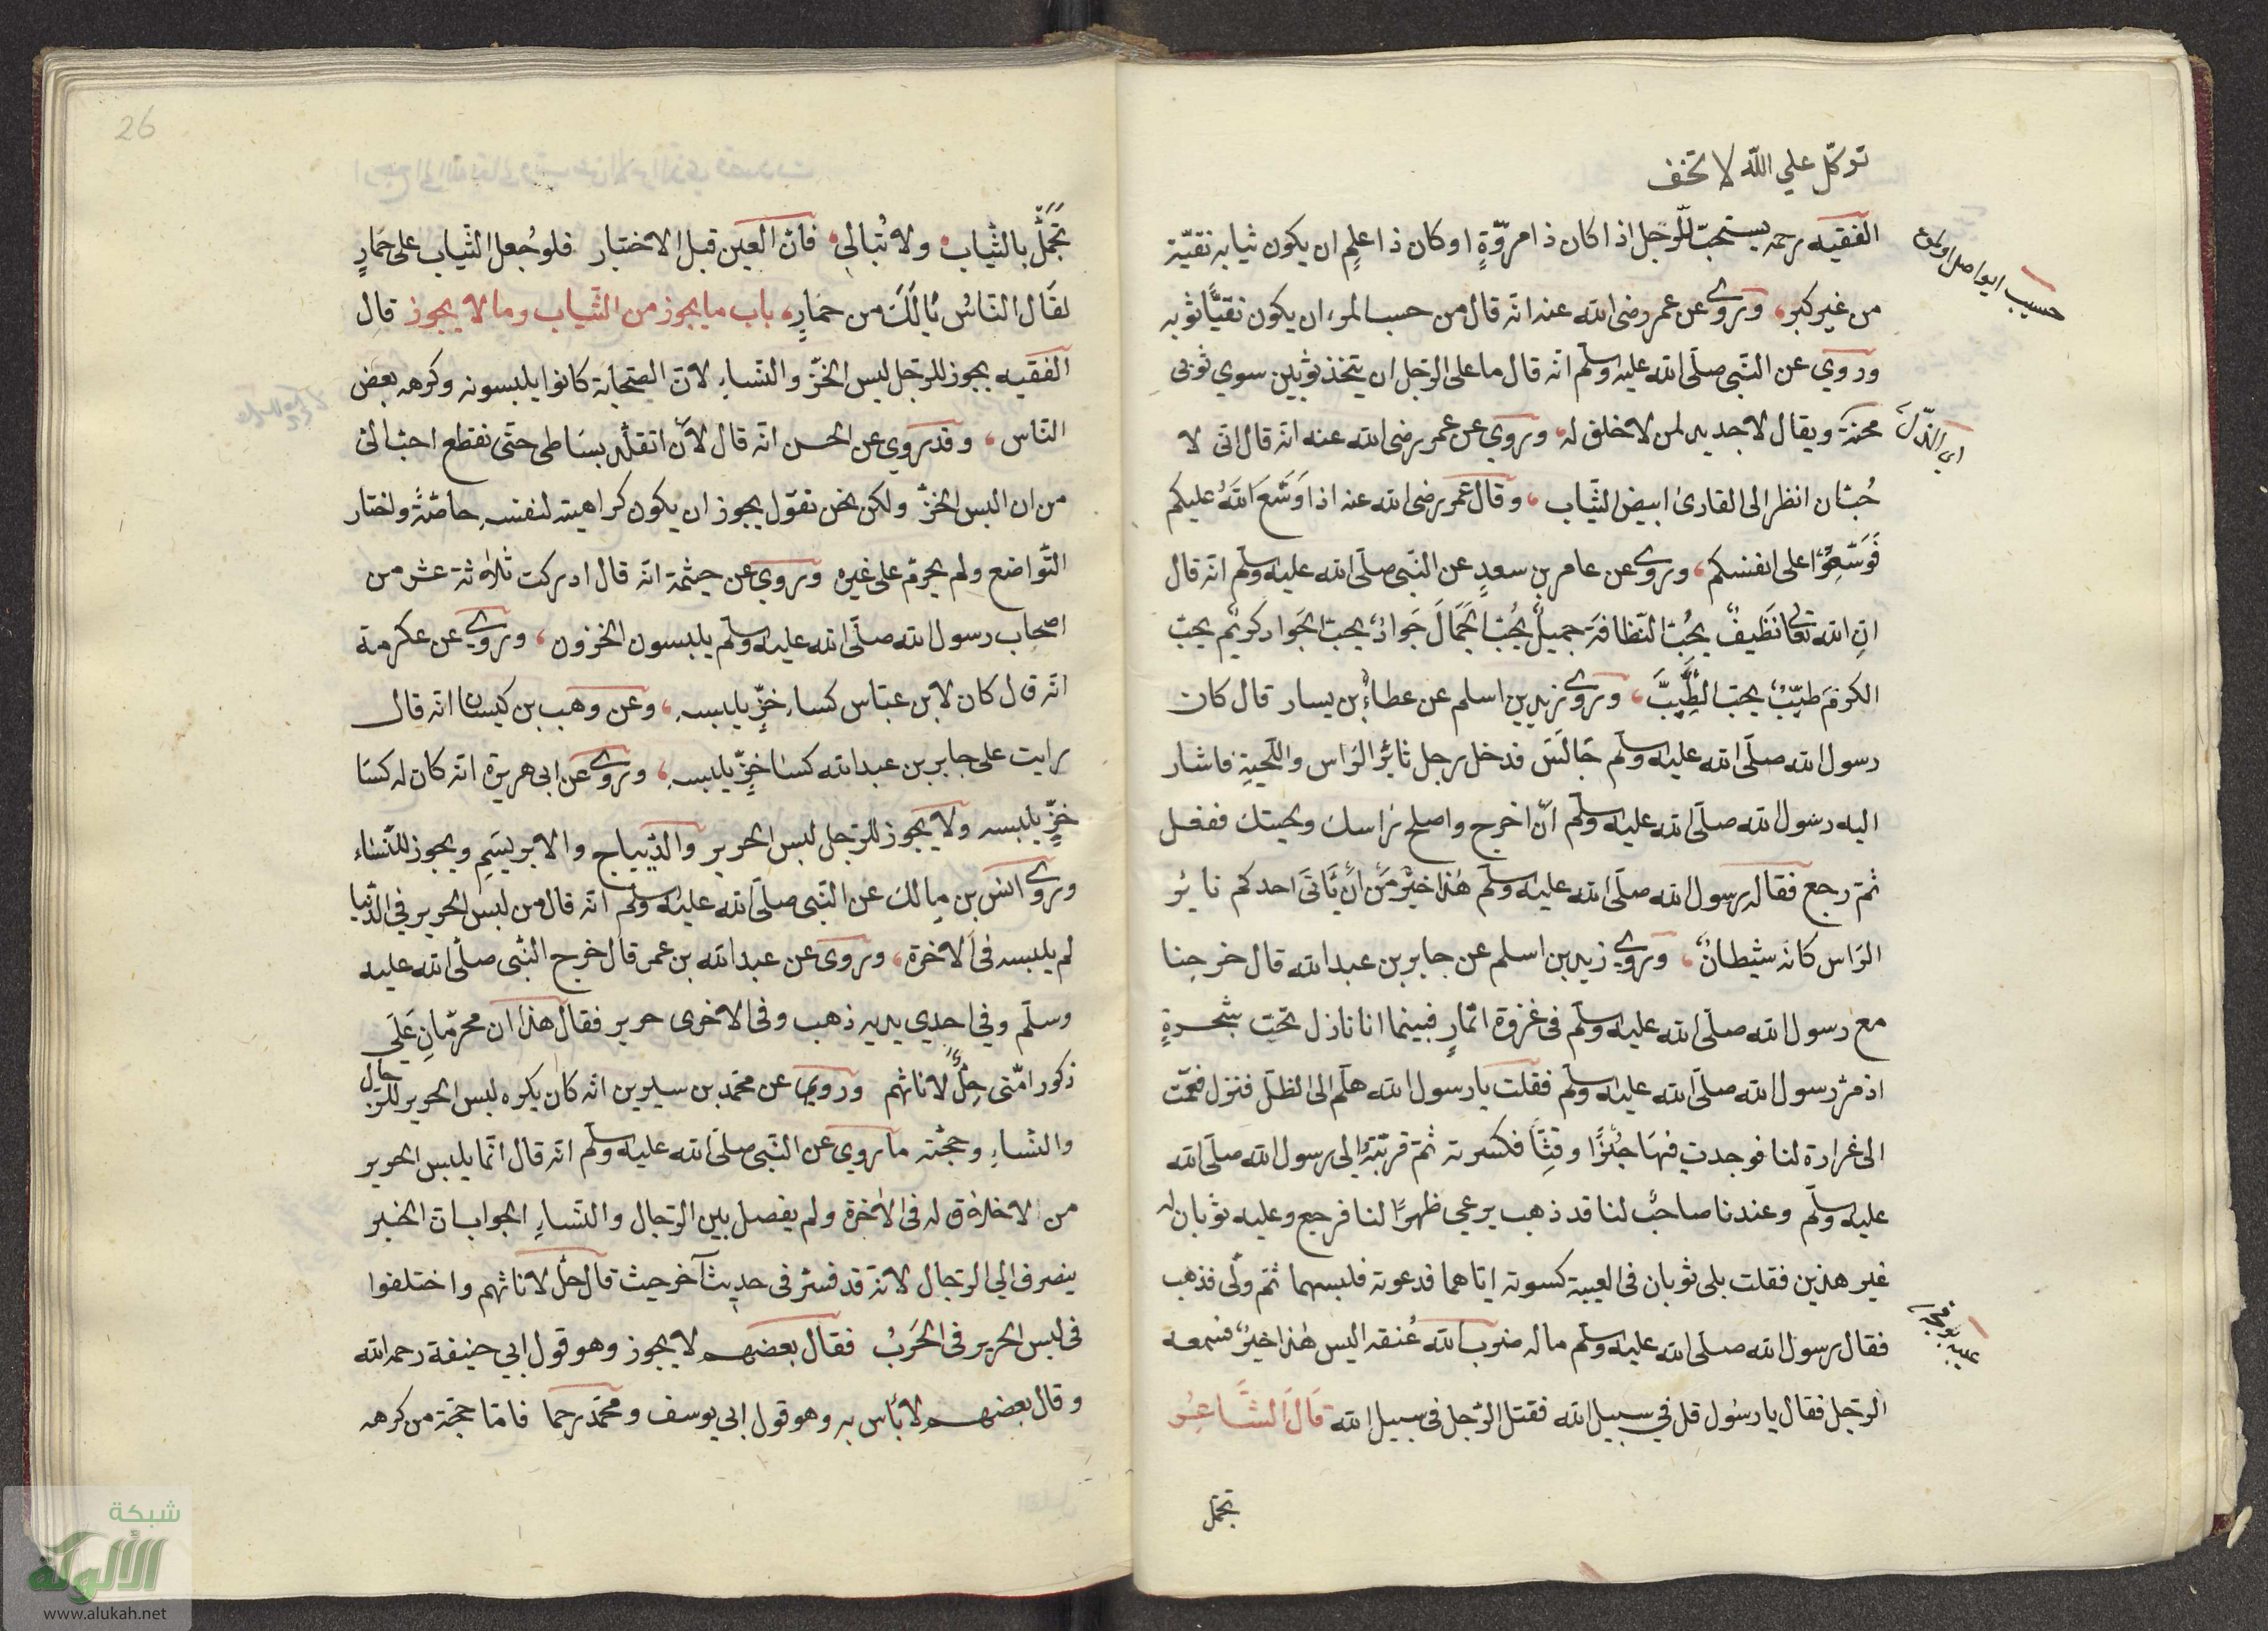 توكّل علي الله لا تخف
الفقيه رحمه يستحبّ للرّجل اذا كان ذا مروّةٍ او كان ذا علمٍ ان يكون ثيابه نقيّة
من غير كبر، وروي عن عمر رضى الله عنه انّه قال من حسب المرء ان يكون نقيًّا ثوبه
وروي عن النّبى صلّى الله عليه وسلّم انّه قال ما على الرّجل ان يتّخذ ثوبين سوي ثوبى
محنته ويقال لا جديد لمن لا خلق له، وروي عن عمر رضى الله عنه انّه قال انّى لا
حُبّان انظر الى القارئ ابيض الثّياب، وقال عمر رضى الله عنه اذا وَسَّعَ اللّهُ عليكم
فَوَسِّعُوا على انفسكم، وروي عن عامر بن سعدٍ عن النّبى صلّى الله عليه وسلّم انّه قال
انّ الله تعالى نَظيفٌ يحُبّ النّظافة جميلٌ يحُبّ الجَمَالَ جَوادٌ يحبّ الجَواد كريمٌ يحبّ
الكرمَ طيّبٌ يحبّ الطِّيبَ، وروي زيد بن اسلم عن عطاء بن يسار قال كان
رسول الله صلّى الله عليه وسلّم جَالسَ فدخل رجل ثائرُ الرّاس واللّحية فاشار
اليه رسول الله صلّى الله عليه وسلّم انْ اخرج واصلح رَاسك ولحيتك ففعل
ثمّ رجع فقال رسول الله صلّى الله عليه وسلّم هٰذا خيرٌ مَنْ انْ يَأتىَ احدكم ثايرُ
الرّاس كانّه شيطانٌ، وروي زيد بن اسلم عن جابر بن عبد الله قال خرجنا
مع رسول الله صلّى الله عليه وسلّم فى غزوة انّمارٍ فبينما انا نازل تحت شجرةٍ
اذ مرّ رسول الله صلّى الله عليه وسلّم فقلت يا رسول الله هلّم الى الظلّ فنزل فقمت
الى غرارة لنا فوجدت فيهَا خُبْزًا وقِثًّا فكسرته ثمّ قربّتهُ الى رسول الله صلّى الله
عليه وسلّم وعندنا صاحبٌ لنا قد ذهب يرعي ظهرًا لنا فرجع وعليه ثوبان له
غير هذين فقلت بلى ثوبان فى العيبة كسوته ايّاهما فدعوته فلبسهما ثمّ ولّى فذهب
فقال رسول الله صلّى الله عليه وسلّم ما له ضرب الله عُنقه اليس هٰذا خيرٌ فسمعه
الرّجل فقال يا رسول قل في سبيل الله فقتل الرّجل فى سبيل الله قَالَ الشَّاعِرُ
تجمّل
حسيب
اى
عيبه
26
تَجَمَّلْ بالثّيابِ ولا تُبالىِ فانّ العين قبل الاختبار فلو جُعل الثّياب على حمَارٍ
لقَال النّاسُ يَالَكَ من حمَارٍ باب ما يجوز من الثّياب وما لا يجوز قال
الفقيه يجوز للرّجل لبس الخزّ والنّساء لانّ الصّحابة كانوا يلبسونه وكرهه بعض
النّاس، وقد روي عن الحسن انّه قال لأن انقلّه بساطى حتّى نقطع احبّ الىّ
من ان البس الخزّ ولكن نحن نقول يجوز ان يكون كراهيته لنفسه خاصّةً واختار
التّواضع ولم يحرّم على غيره وروي عن خيثمة انّه قال ادركت ثلاثة عشر من
اصحاب رسول الله صلّى الله عليه وسلّم يلبسون الخزون، وروي عن عكرمة
انّه قال كان لابن عبّاس كساء خزٍّ يلبسه، وعن وهب بن كيسان انّه قال
رايت على جابر بن عبد الله كساء خزٍّ يلبسه، وروي عن ابى هريرة انّه كان له كسا
خزٍّ يلبسه ولا يجوز للرّجل لبس الحرير والدّيباج والابريسَمِ ويجوز للنّساء
وروي انس بن مالك عن النّبى صلّى الله عليه وسلّم انّه قال من لبس الحرير في الدّنيا
لم يلبسه فى الاخرة، وروى عن عبد الله بن عمر قال خرج النّبى صلّى الله عليه
وسلّم وفي احدي يديه ذهب وفى الاخرى حرير فقال هذا ان محرّمانِ عَلَى
ذكور امّتى حِلٌّ لاناثهم وروي عن محمّد بن سيرين انّه كان يكره لبس الحرير للرّجال
والنّساءِ وحجّته ما روي عن النّبى صلّى الله عليه وسلّم انّه قال انّما يلبس الحرير
من لا خلاق له فى الاخرة ولم يفصل بين الرّجال والنّساءِ الجواب انّ الخبر
ينصرف الي الرّجال لانّه قد فسّر فى حديث آخر حيث قال حلّ لاناثهم واختلفوا
فى لبس الحرير فى الحَرْبُ فقال بعضهم لا يجوز وهو قول ابي حنيفة رحمه الله
وقال بعضهم لا بأس به وهو قول ابى يوسف ومحمّد رحما فامّا حجّة من كرهه
شبكة
الألوكة
www.alukah.net